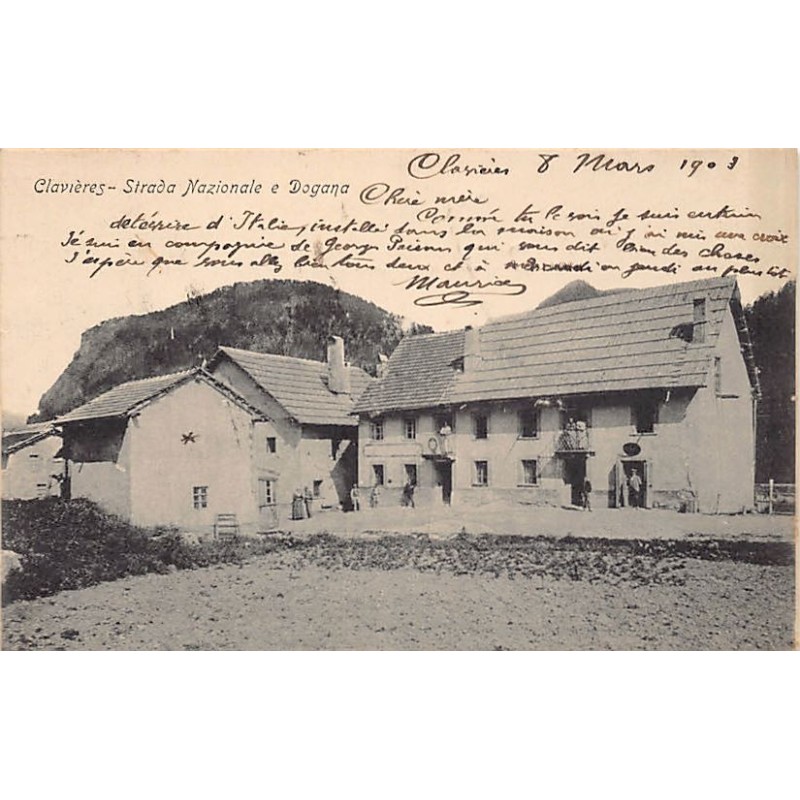 Clavières - Strada Nazionale e Dogana
Clavières 8 Mars 1903
Chère mère
Comme tu le vois je suis en train
d'Italie, installé dans la maison où j'ai mis une croix
Je suis en compagnie de Georges qui vous dit bien des choses
J'espère que vous allez bien tous deux et à ou jeudi au plus tôt
Maurice